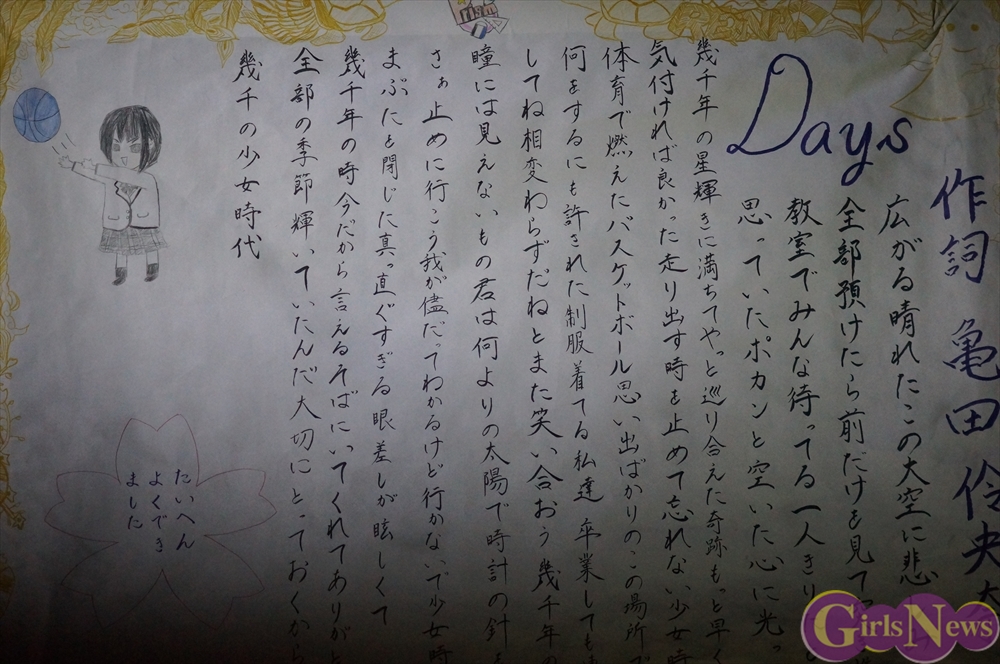 Days
作詞 亀田 伶央
広がる晴れたこの大空に悲し
全部預けたら前だけを見て
教室でみんな待ってる一人きり
思っていたポカンと空いた心に光っ
幾千年の星輝きに満ちてやっと巡り合えた奇跡もっと早く
気付ければ良かった走り出す時を止めて忘れない少女時
体育で燃えたバスケットボール思い出ばかりのこの場所で
何をするにも許された制服着てる私達 卒業しても
してね相変わらずだねとまた笑い合おう幾千年の
瞳には見えないもの君は何よりの太陽で時計の針を
さぁ止めに行こう我が儘だってわかるけど行かないで少女時
まぶたを閉じた真っ直ぐすぎる眼差しが眩しくて
幾千年の時今だから言えるそばにいてくれてありがと
全部の季節輝いていたんだ大切にとっておくから
幾千の少女時代
たいへん
よくでき
ました
GirlsNews